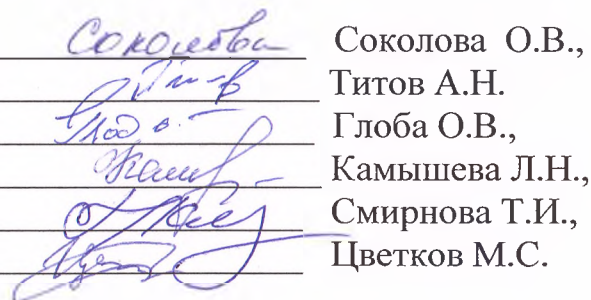 Соколова Соколова О.В.,
Титов А.Н.
Глоба О.В.,
Камышева Л.Н.,
Смирнова Т.И.,
Цветков М.С.